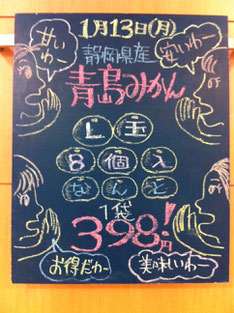 1月13日(月)
甘いわー
安いわー
静岡県産
青島みかん
L玉
8個入
なんと
1袋
398!円
お得だわー
美味しいわー